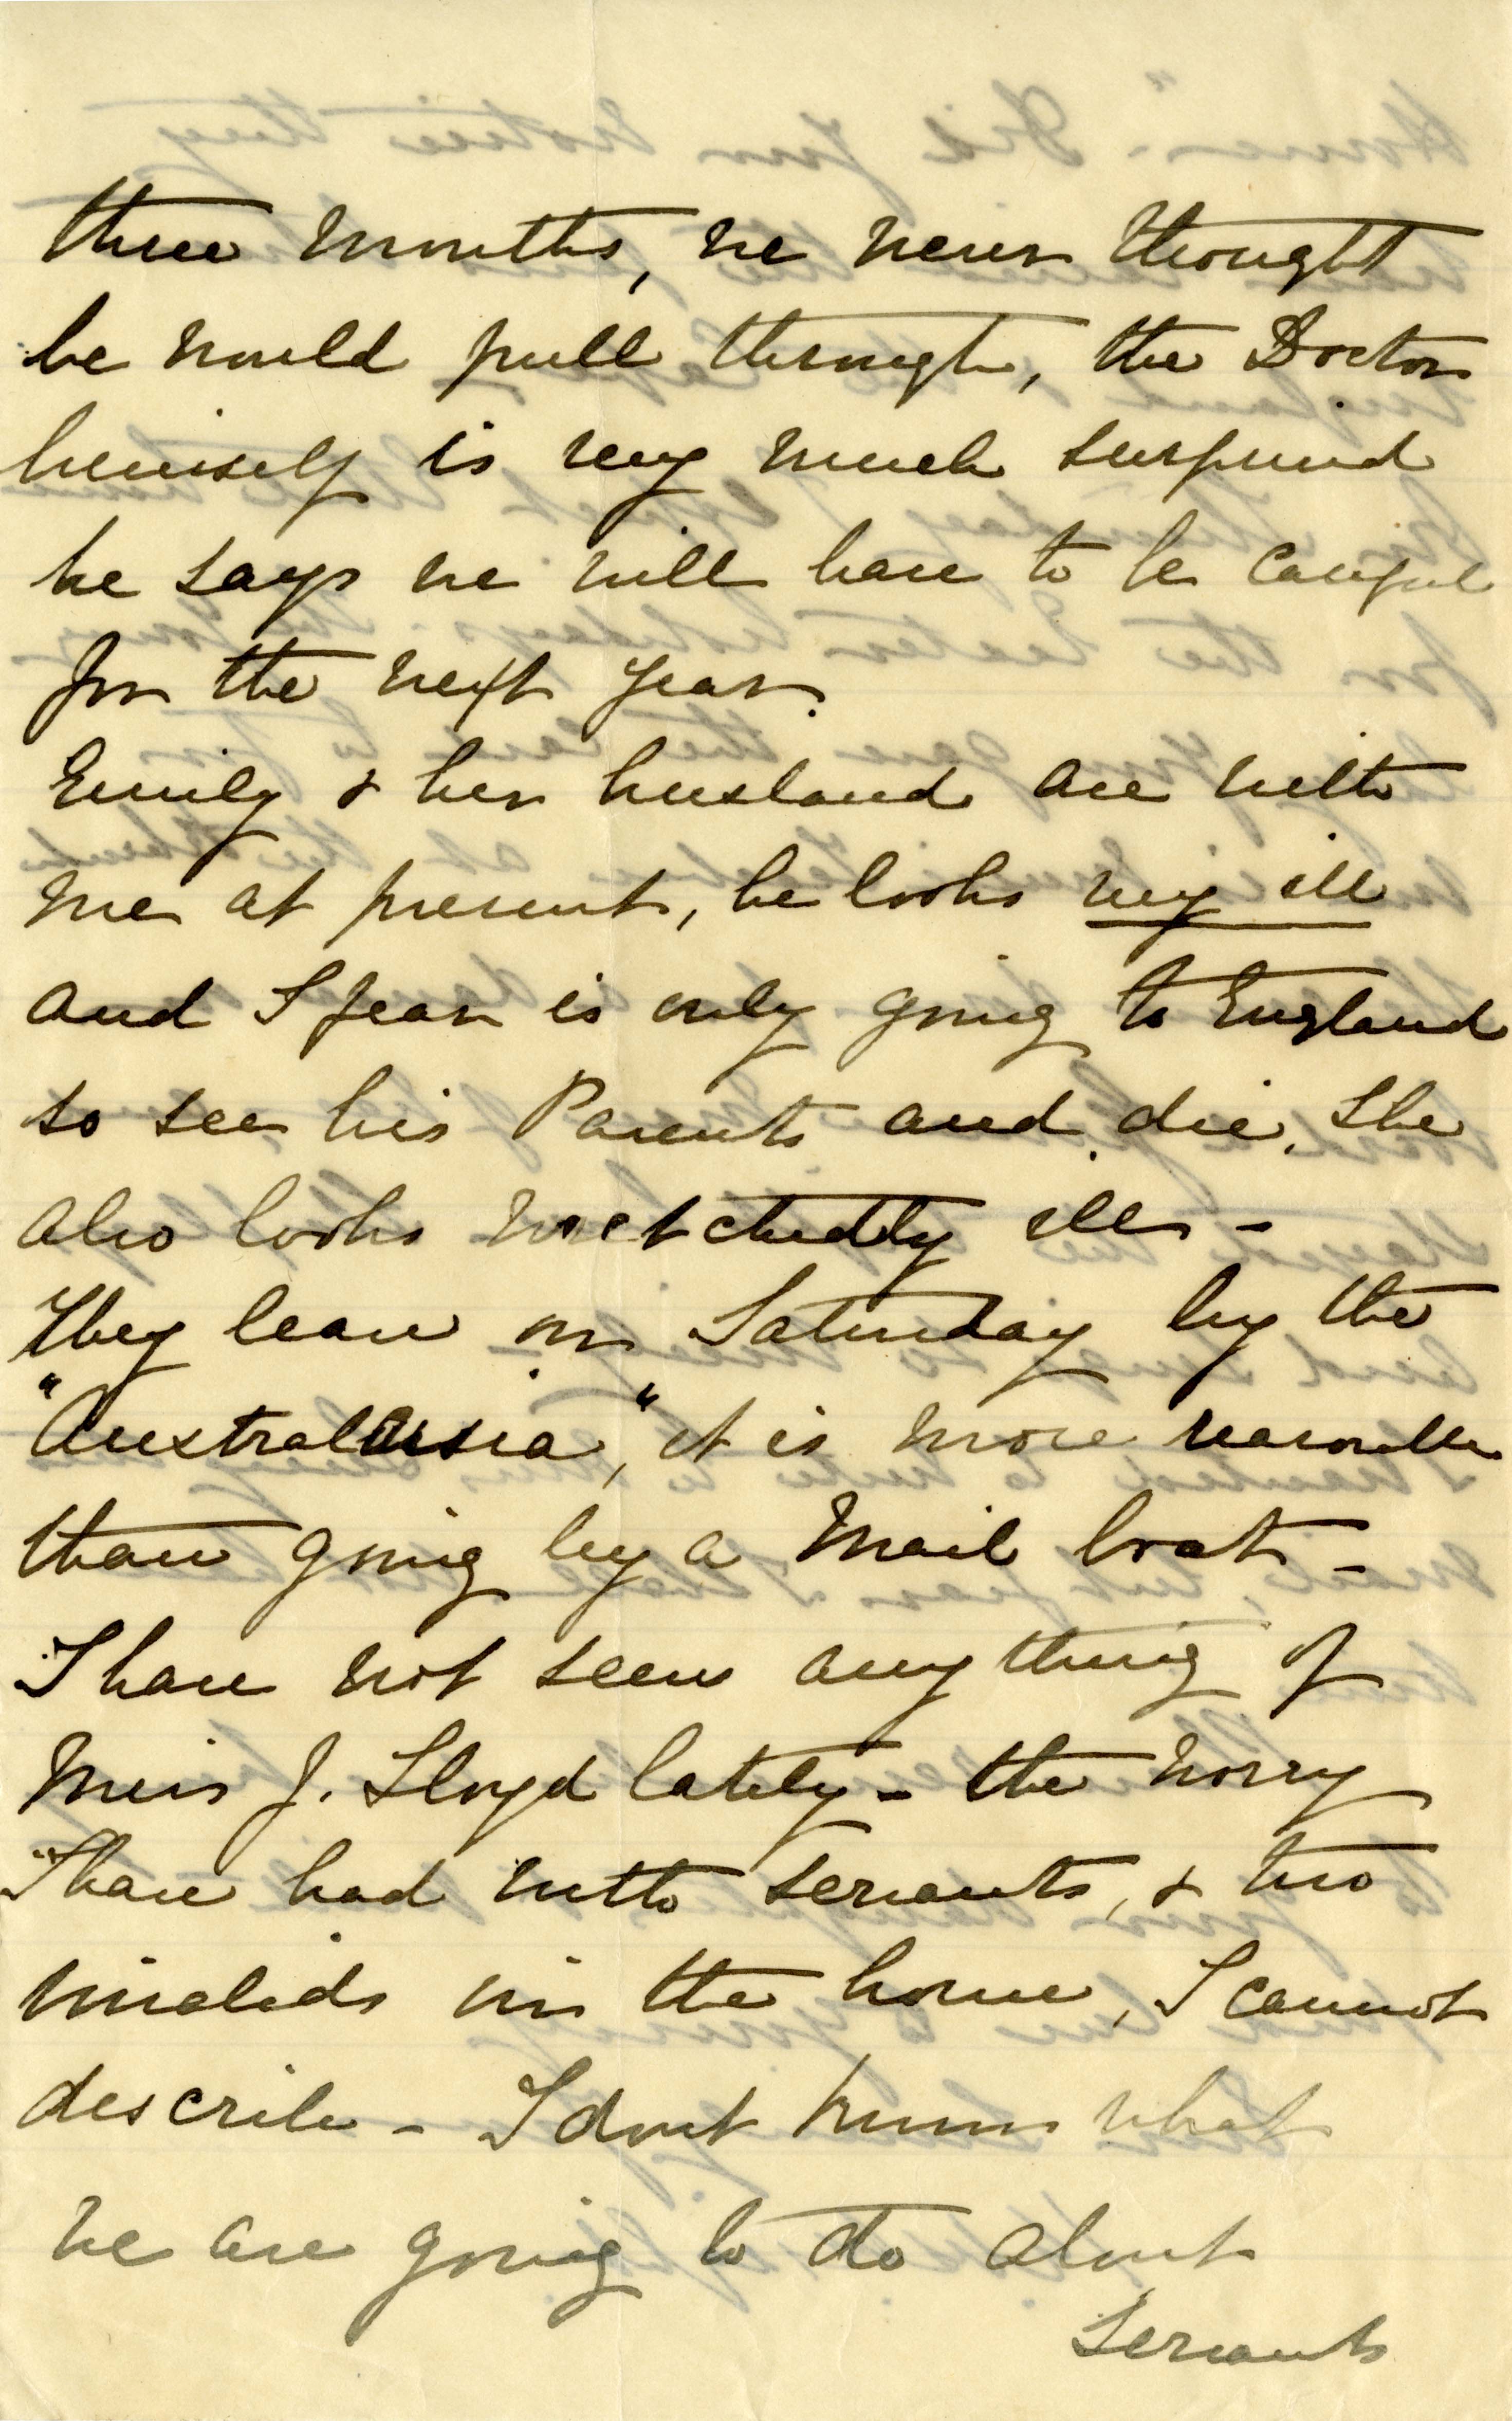 three months, we never thought
he would pull through, the Doctor
himself is very much surprised
he says we will have to be careful
for the next year.
Emily & her husband are with
me at present, he looks very ill
and I fear is only going to England
to see his Parents and die, she
also looks wretchedly ill -
They leave on Saturday by the
"Australasia," it is more reasonable
than going by a Mail boat -
I have not seen anything of
Miss J. Lloyd lately - the worry
I have had with servants, & two
invalids in the house, I cannot
describe - I dont know what
we are going to do about
Servants